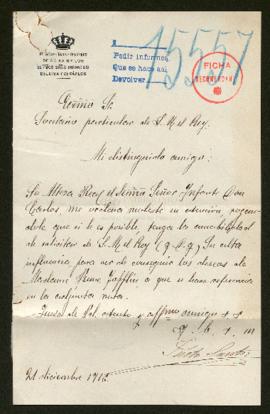 15557
Pedir informes
Que se hace así
Devolver
FICHA
Sr
Secretario particular de S. M. el Rey.
Mi distinguido amigo:
Su Alteza Real el Señor Infante Don
Carlos, me ordena moleste su atención, rogan-
dole que si le es posible, tenga la amabilidad
de solicitar de S. M. el Rey (q. D. g.) Su alta
influencia para ver de conseguir los deseos de
Madame a que se hace referencia
en la adjunta nota.
de Vd. atento y affmo amigo s s
q. b. s. m
21 diciembre 1915.